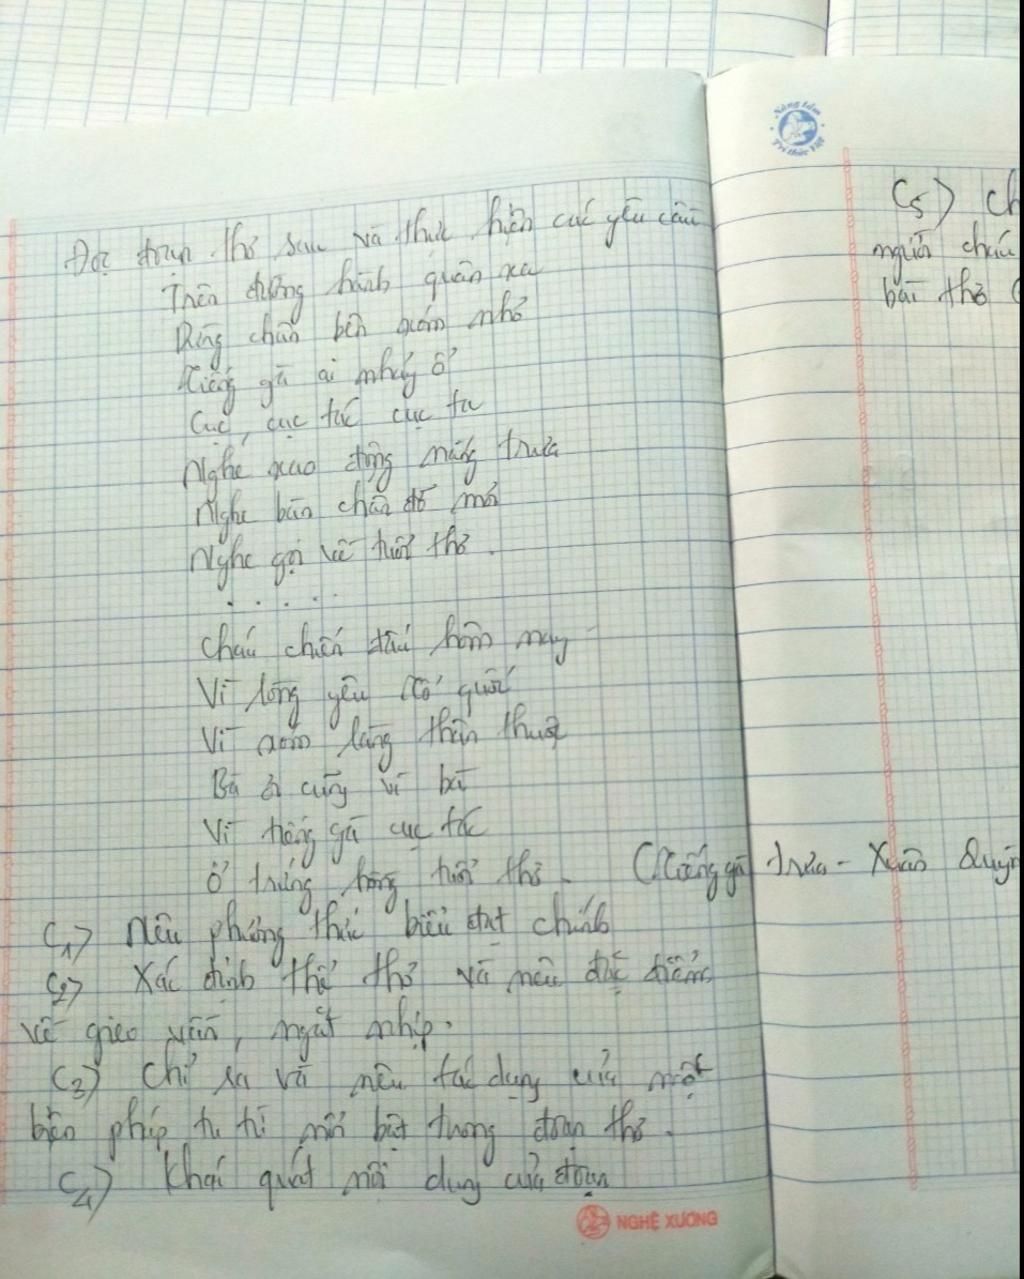 Nâng tầm
Trí thức Việt
Đọc đoạn thơ sau và thực hiện các yêu cầu
Trên đường hành quân xa
Dừng chân bên xóm nhỏ
Tiếng gà ai nhảy ổ
Cục, cục tác cục ta
Nghe xao động nắng trưa
Nghe bàn chân đỡ mỏi
Nghe gọi về tuổi thơ.
.....
Cháu chiến đấu hôm nay
Vì lòng yêu Tổ quốc
Vì xóm làng thân thuộc
Bà ơi cũng vì bà
Vì tiếng gà cục tác
Ổ trứng hồng tuổi thơ. (Tiếng gà trưa - Xuân Quỳn
C1) Nêu phương thức biểu đạt chính
C2) Xác định thể thơ và nêu đặc điểm
về gieo vần, ngắt nhịp.
C3) Chỉ ra và nêu tác dụng của một
biện pháp tu từ nổi bật trong đoạn thơ.
C4) Khái quát nội dung của đoạn
NGHỆ XƯƠNG
C5) Ch
người cháu
bài thơ (